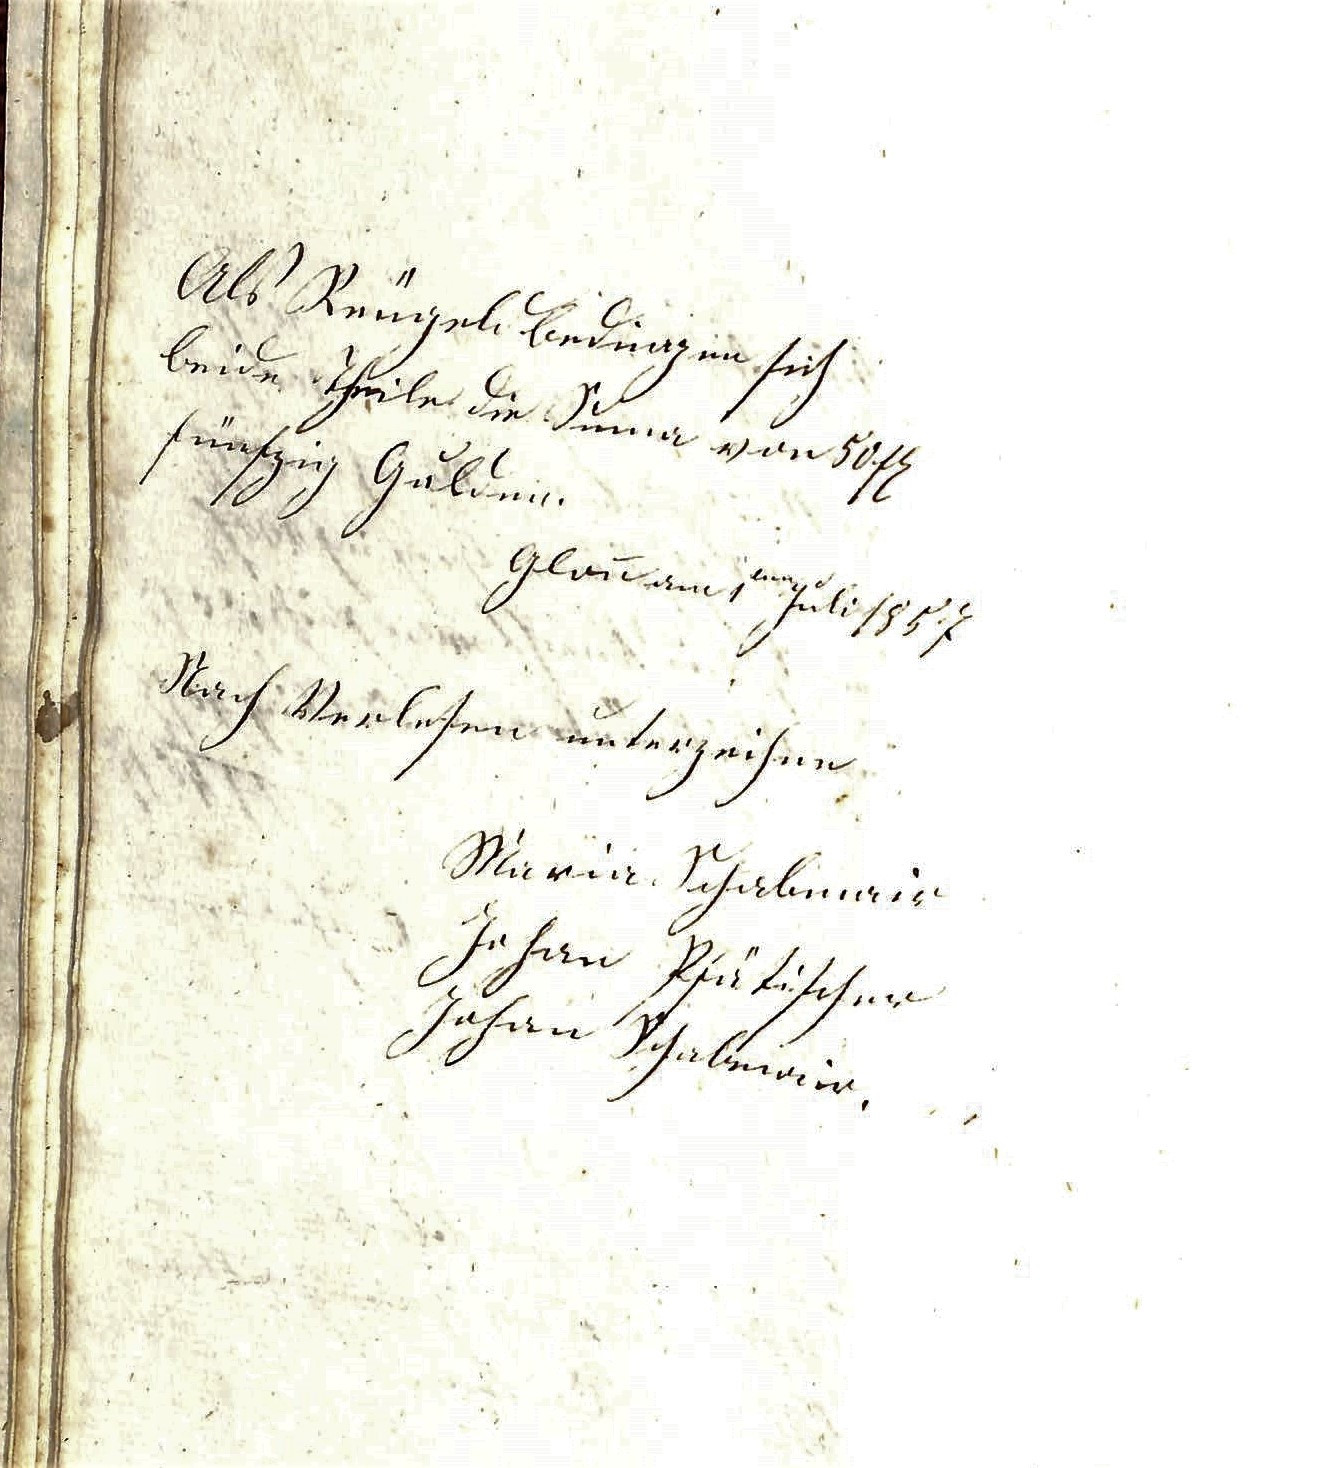 Als Reugeld bedingen sich
beide Theile die Suma von 50 fl
fünfzig Gulden.
Glon am 1ten Juli 1857
Nach Verlesen unterzeichne
Maria Schabmair
Johan Pfätischer
Johan Schabmair.